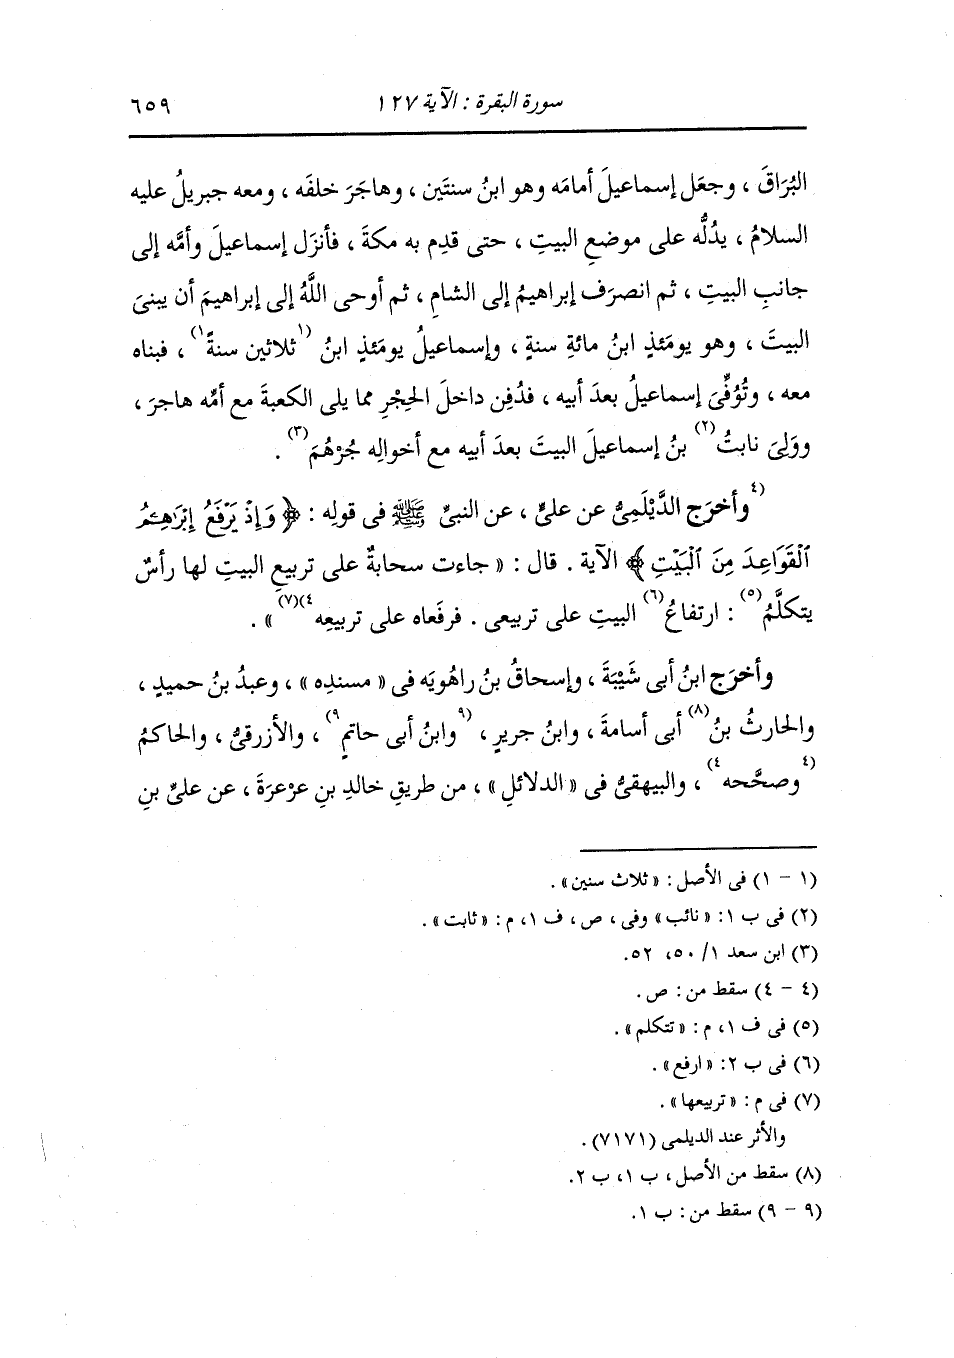 سورة البقرة : الآية ١٢٧ ٦٥٩
البُرَاقَ ، وجعَل إسماعيلَ أمامَه وهو ابنُ سنتَين ، وهاجَرَ خلفَه ، ومعه جبريلُ عليه
السلامُ ، يدُلُّه على موضعِ البيتِ ، حتى قدِم به مكةَ ، فأنزَل إسماعيلَ وأمَّه إلى
جانبِ البيتِ ، ثم انصرَف إبراهيمُ إلى الشامِ ، ثم أوحى اللَّهُ إلى إبراهيمَ أن يبنىَ
البيتَ ، وهو يومَئذٍ ابنُ مائةِ سنةٍ ، وإسماعيلُ يومَئذٍ ابنُ (١ثلاثين سنةً١) ، فبناه
معه ، وتُوُفِّىَ إسماعيلُ بعدَ أبيه ، فدُفِن داخلَ الحِجْرِ مما يلى الكعبةَ مع أمِّه هاجرَ ،
ووَلِىَ نابتُ(٢) بنُ إسماعيلَ البيتَ بعدَ أبيه مع أخوالِه جُرْهُمَ(٣) .
(٤وأخرَج الدَّيْلَمِىُّ عن علىٍّ ، عن النبىِّ ﷺ فى قولِه : ﴿ وَإِذْ يَرْفَعُ إِبْرَاهِـۧمُ
ٱلْقَوَاعِدَ مِنَ ٱلْبَيْتِ ﴾ الآية . قال : « جاءت سحابةٌ على تربيعِ البيتِ لها رأسٌ
يتكلَّمُ(٥) : ارتفاعُ(٦) البيتِ على تربيعى . فرفَعاه على تربيعِه(٧)٤) » .
وأخرَج ابنُ أبى شَيْبَةَ ، وإسحاقُ بنُ راهُويَه فى « مسندِه » ، وعبدُ بنُ حميدٍ ،
والحارثُ بنُ(٨) أبى أسامةَ ، وابنُ جريرٍ ، (٩وابنُ أبى حاتمٍ٩) ، والأزرقىُّ ، والحاكمُ
(٤وصحَّحه٤) ، والبيهقىُّ فى « الدلائلِ » ، من طريقِ خالدِ بنِ عرْعرَةَ ، عن علىِّ بنِ
(١ - ١) فى الأصل : « ثلاث سنين » .
(٢) فى ب ١: « نائب » وفى ، ص ، ف ١، م : « ثابت » .
(٣) ابن سعد ١/ ٥٠، ٥٢.
(٤ - ٤) سقط من : ص .
(٥) فى ف ١، م : « تتكلم » .
(٦) فى ب ٢: « ارفع » .
(٧) فى م : « تربيعها » .
والأثر عند الديلمى (٧١٧١) .
(٨) سقط من الأصل ، ب ١، ب ٢.
(٩ - ٩) سقط من : ب ١.